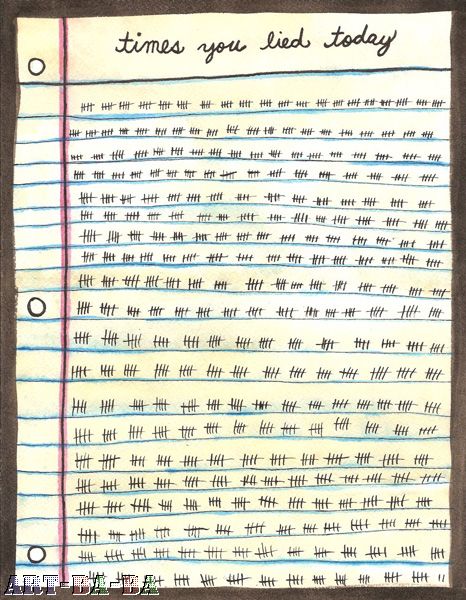 times you lied today
ART-BA-BA